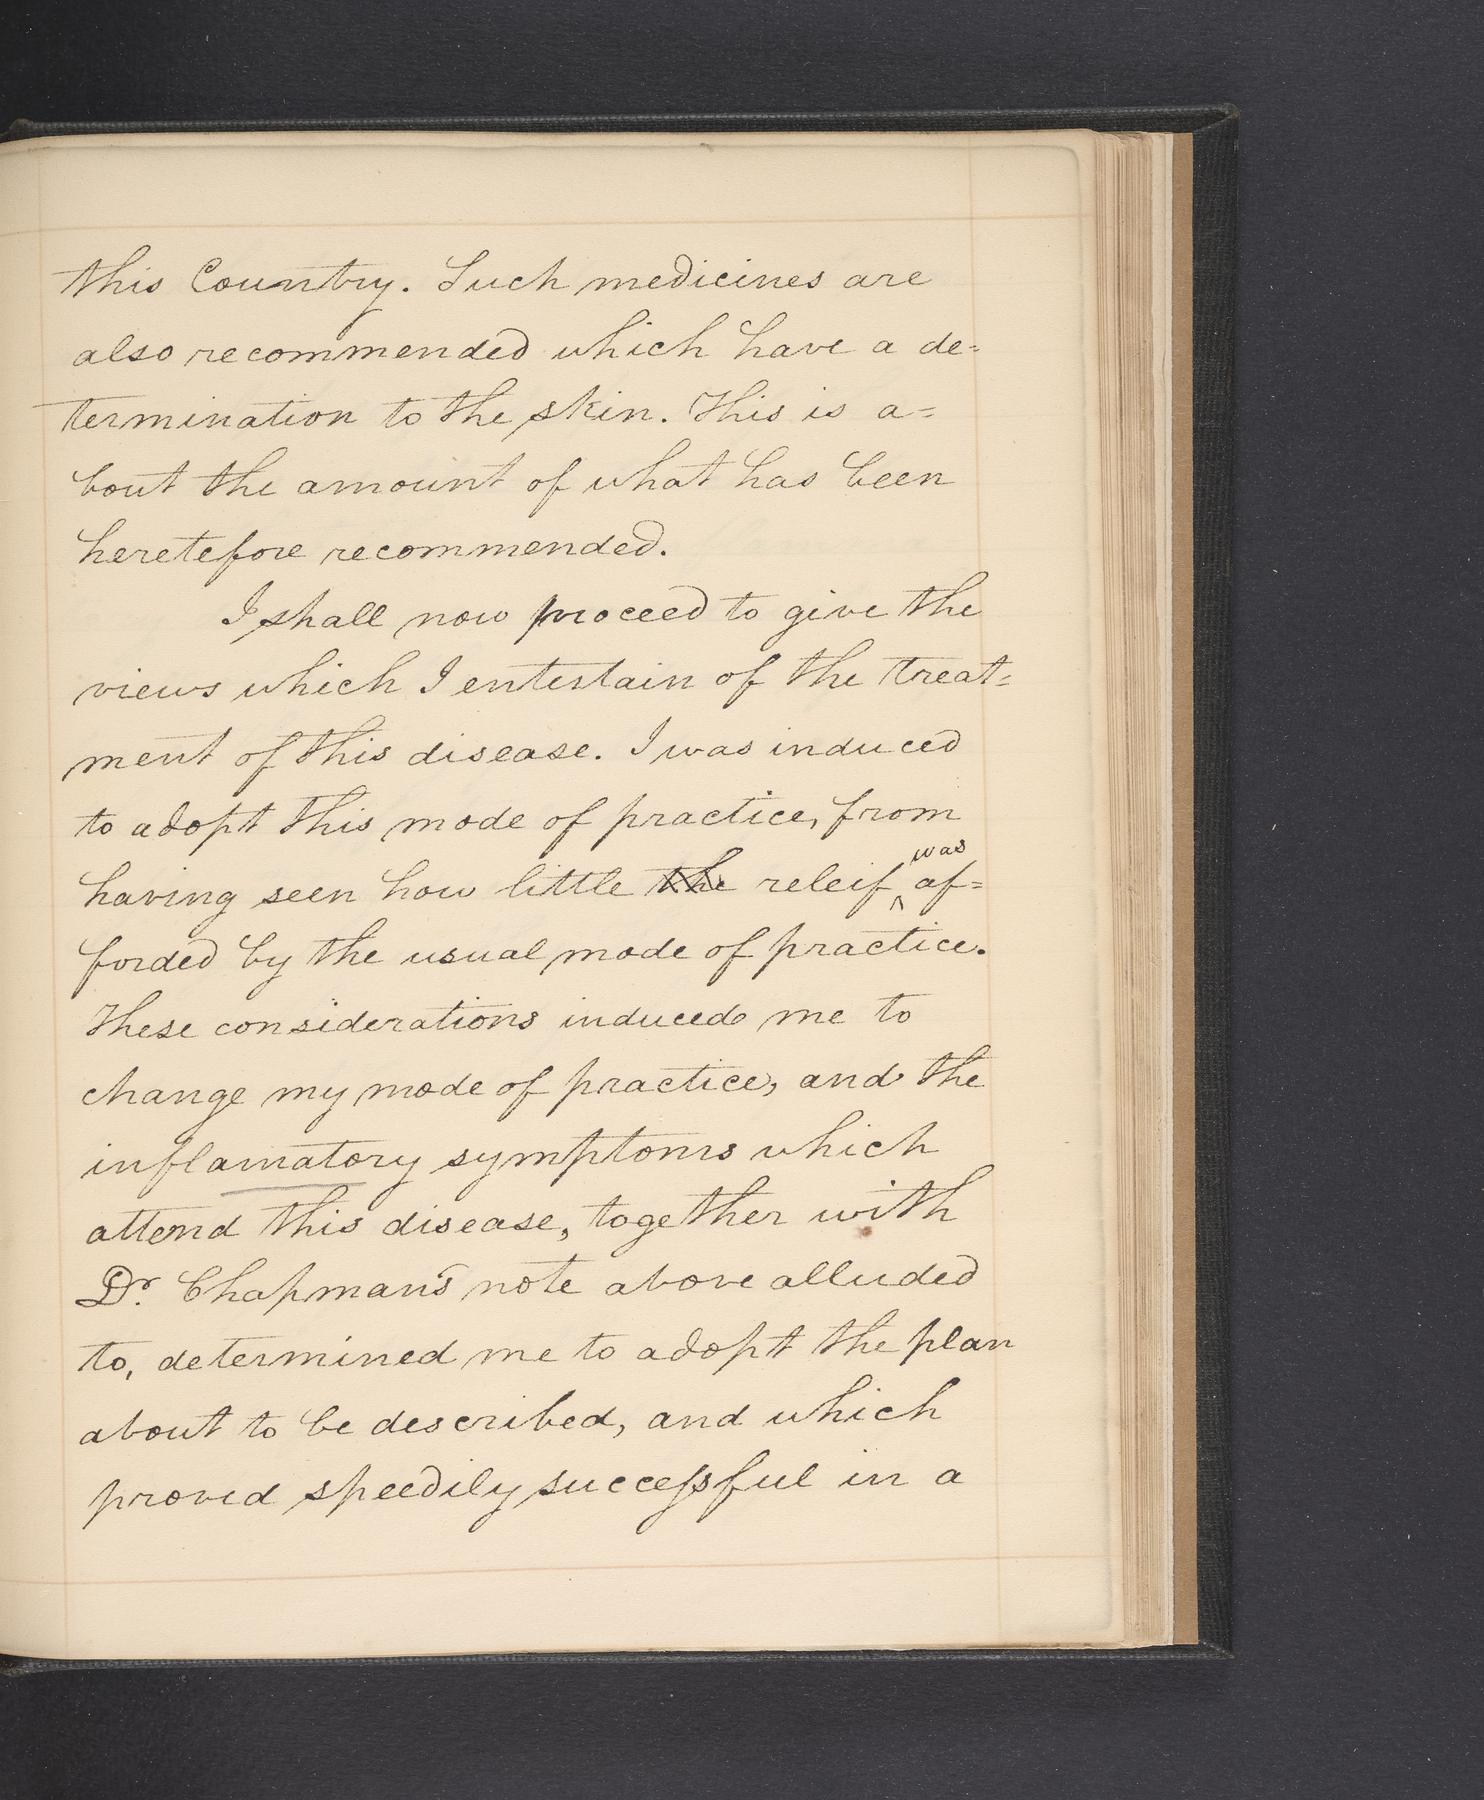 this Country. Such medicines are
also recommended which have a de-
termination to the skin. This is a-
bout the amount of what has been
heretefore recommended.
I shall now proceed to give the
views which I entertain of the treat-
ment of this disease. I was induced
to adopt this mode of practice, from
having seen how little the releif was af-
forded by the usual mode of practice.
These considerations induced me to
change my mode of practice, and the
inflamatory symptoms which
attend this disease, together with
Dr. Chapman's note above alluded
to, determined me to adopt the plan
about to be described, and which
proved speedily successful in a